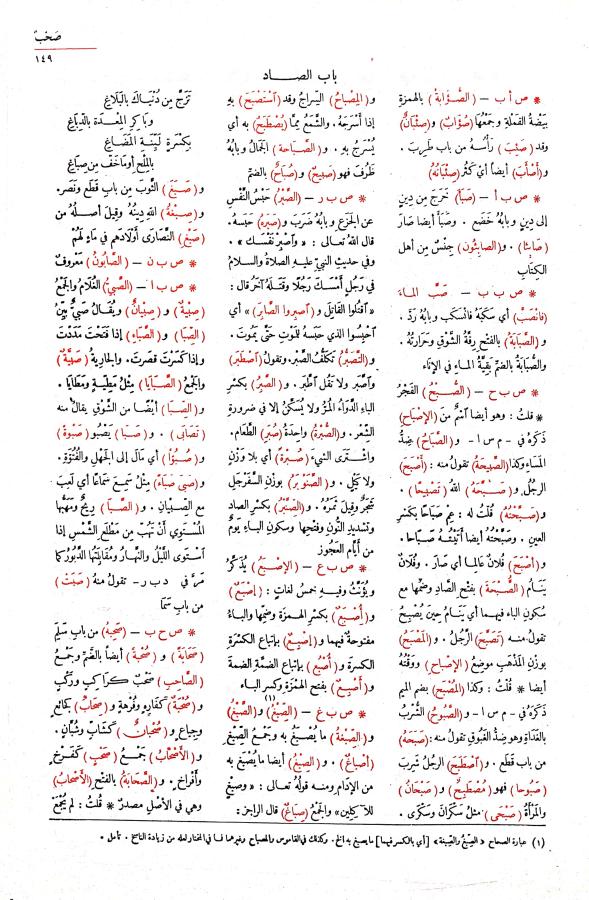 صَحْبٌ
١٤٩
باب الصاد
* ص أ ب – (الصُّؤَابة) بالهمزة
بَيْضَةُ القَمْلَةِ وجمعُها (صُؤَابٌ) و(صِئْبَانٌ)
وقد (صَئِبَ) رَأْسُه من باب طَرِبَ .
و(أَصْأَبَ) أيضاً أي كَثُر (صِئْبَانُهُ)
* ص ب أ – (صَبَأَ) خَرَج من دِينٍ
إلى دينٍ وبابُهُ خَضَع . وصَبَأَ أيضا صَارَ
(صَابِئا) . و(الصابِئُون) جِنْسٌ مِن أهل
الكتَابِ
* ص ب ب – صَبَّ الماءَ
(فانْصَبَّ) أي سَكَبَهُ فانْسَكَب وبابُهُ رَدَّ .
و(الصَّبَابَةُ) بالفتح رِقَّةُ الشَّوْقِ وحَرَارَتُه .
والصُّبَابَةُ بالضم بَقِيَّةُ الماءِ في الإناءِ
* ص ب ح – (الصُّبْحُ) الفَجْرُ
* قلتُ : وهو أيضا اسْمٌ مِنَ (الإصْبَاحِ)
ذَكَرهُ في – م س ا – و(الصَّبَاحُ) ضِدُّ
المَسَاءِ وكذا (الصَّبِيحَةُ) تقولُ منه : (أَصْبَحَ)
الرجُلُ و(صَبَّحَهُ) اللّهُ (تَصْبِيحا) .
و(صَبَّحْتُهُ) قُلتُ له : عِمْ صَبَاحًا بكَسْرِ
العين . وصَبَّحْتُهُ أيضا أَتَيْتُه صَبَاحا .
و(أَصْبَحَ) فُلَانٌ عالِمًا أي صَارَ . وفُلانٌ
يَنَامُ (الصُّبْحَةَ) بفتح الصَّادِ وضمِّها مع
سُكون الباء فيهما أي يَنَامُ حِينَ يُصْبِحُ
تقولُ منه (تَصَبَّحَ) الرَّجُلُ . و(المَصْبَحُ)
بوزن المَذْهَبِ موضِعُ (الإصْبَاح) ووَقْتُهُ
أيضا * قُلْتُ : وكذا (المُصْبَحُ) بضم الميم
ذَكَرَهُ في – م س ا – و(الصَّبُوحُ) الشُّرْبُ
بالغَدَاةِ وهو ضِدُّ الغَبُوقِ تقولُ منه : (صَبَحَهُ)
من باب قَطَع . و(اصْطَبَحَ) الرجُلُ شَرِبَ
(صَبُوحا) فهو (مُصْطَبِحٌ) و(صَبْحَانُ)
والمرأةُ (صَبْحَى) مثلُ سَكْرَانَ وسَكْرَى .
و(المِصْبَاحُ) السِّراجُ وقد (اسْتَصْبَحَ) به
إذا أَسْرَجَهُ . والشَّمَعُ مِمَّا (يُصْطَبَحُ) به أي
يُسْرَجُ بِه . و(الصَّبَاحَة) الجَمَالُ وبابُهُ
ظَرُف فهو (صَبِيحٌ) و(صُبَاحٌ) بالضم
* ص ب ر – (الصَّبْرُ) حَبْسُ النَّفْسِ
عن الجَزَعِ وبابُهُ ضَرَبَ و(صَبَرَهُ) حَبَسَهُ .
قال اللهُ تعالى : « واصْبِرْ نَفْسَكَ » .
وفي حَديثِ النبيِّ عليهِ الصلاةُ والسلامُ
في رَجُلٍ أَمْسَكَ رَجُلًا وقَتَلَهُ آخَرُ قال :
« اقْتُلُوا القَاتِلَ و(اصبِروا الصَّابِرَ)» أي
احْبِسُوا الذي حَبَسَهُ للمَوْتِ حَتَّى يَمُوتَ .
و(التَّصَبُّر) تَكَلُّفُ الصَّبر. وتقول (اصْطَبَرَ)
واصَّبَرَ ولا تَقُل اطَّبَرَ . و(الصَّبِرُ) بكسر
الباء الدَّوَاءُ المُرُّ ولا يُسَكَّنُ إلا في ضرورةِ
الشِّعْر . و(الصُّبْرَةُ) واحدةُ (صُبَرِ) الطَّعَام.
واشْتَرَى الشيءَ (صُبْرةً) أي بلا وَزْنٍ
ولا كَيْلٍ . و(الصَّنَوْبَر) بوزن السَّفَرْجَلِ
شَجَرٌ وقيلَ ثَمَرُه . و(الصِّنَّبْرُ) بكسر الصاد
وتشديد النُّون وفتحها وسكونِ الباءِ يومٌ
من أَيَّام العَجُوز
* ص ب ع – (الإصْبَعُ) يُذَكَّرُ
ويُؤَنَّثُ وفيهِ خمسُ لغَاتٍ : (إِصْبَعٌ)
و(أُصْبَعٌ) بكسْرِ الهمزةِ وضمِّها والباءُ
مفتوحةٌ فيهما و(إصْبِعٌ) بإتباع الكَسْرَةِ
الكسرةَ و(أُصْبُع) بإتباع الضمةِ الضمةَ
و(أَصْبِعٌ) بفتح الهَمْزَة وكسرِ الباء
* ص ب غ – (الصِّبْغُ) و(الصِّبَغُ) (١)
و(الصِّبْغَةُ) ما يُصْبَغُ به وجَمْعُ الصِّبْغِ
(أَصْبَاغٌ) . و(الصِّبْغُ) أيضا ما يُصْبَغُ به
من الإدَامِ ومنه قولُهُ تعالى : « وصِبْغٍ
للآكِلِينَ» والجَمْعُ (صِبَاغٌ) قال الراجز :
تَزَجَّ مِن دُنْيَاكَ بالبَلَاغِ
وبَاكِرِ المِعْدَةَ بالدِّبَاغِ
بِكِسْرَةٍ لَيِّنَةِ المَضَاغِ
بالمِلْحِ أو ما خَفَّ مِن صِبَاغِ
و(صَبَغَ) الثَّوبَ من باب قَطَع ونَصَر.
و(صِبْغَةُ) اللهِ دِينُهُ وقيلَ أصلُهُ من
(صَبْغِ) النَّصَارَى أولادَهم في ماءٍ لَهُمْ
* ص ب ن – (الصَّابُونُ) مَعْروفٌ
* ص ب ا – (الصَّبِيُّ) الغُلَامُ والجمعُ
(صِبْيَةٌ) و(صِبْيَانٌ) ويُقالُ صَبِيٌّ بَيِّنُ
(الصِّبَا) و(الصَّبَاءِ) إذا فَتَحْتَ مَدَدْتَ
وإذا كَسَرْتَ قَصَرْتَ . والجَاريةُ (صَبِيَّةٌ)
والجمعُ (الصَّبَايَا) مِثْلُ مَطِيَّةٍ ومَطَايَا .
و(الصِّبَا) أيضًا من الشَّوْقِ يقالُ منه
(تَصَابَى) . و(صَبَا) يَصْبُو (صَبْوَةً)
و(صُبُوًّا) أي مَالَ إلى الجَهْلِ والفُتُوَّةِ .
و(صَبِيَ صَبَاءً) مِثْلُ سَمِعَ سَمَاعًا أي لَعِبَ
مع الصِّبيَانِ . و(الصَّبَا) رِيحٌ ومَهَبُّهَا
المُسْتَوِي أَنْ تَهُبَّ مِن مَطْلَعِ الشَّمْسِ إذا
اسْتَوَى اللَّيْلُ والنَّهَارُ ومُقَابِلَتُهَا الدَّبُورُ كما
مَرَّ في – د ب ر – تقولُ منهُ (صَبَتْ)
مِن بابِ سَمَا
* ص ح ب – (صَحِبَهُ) من باب سَلِمَ
(صَحَابَةً) و(صُحْبَةً) أيضًا بالضَّمِّ وجَمْعُ
(الصَّاحِبِ) صَحْبٌ كَرَاكِبٍ ورَكْبٍ
و(صُحْبَةٌ) كفَارِهٍ وفُرْهَةٍ و(صِحَابٌ) كجَائِعٍ
وجِيَاعٍ و(صُحْبَانٌ) كشَابٍّ وشُبَّانٍ .
و(الأَصْحَابُ) جَمْعُ (صَحْبٍ) كَفَرْخٍ
وأَفْرَاخٍ . و(الصَّحَابَةُ) بالفتح (الأَصْحَابُ)
وهي في الأَصْلِ مصدَرٌ * قُلتُ : لم يُجْمَعْ
(١) عبارة الصحاح «الصِّبْغ والصِّبغة» [أي بالكسر فيهما] ما يصبغ به الخ . وكذلك في القاموس والمصباح وغيرهما فما في المختار لعله من زيادة الناسخ . تأمل *